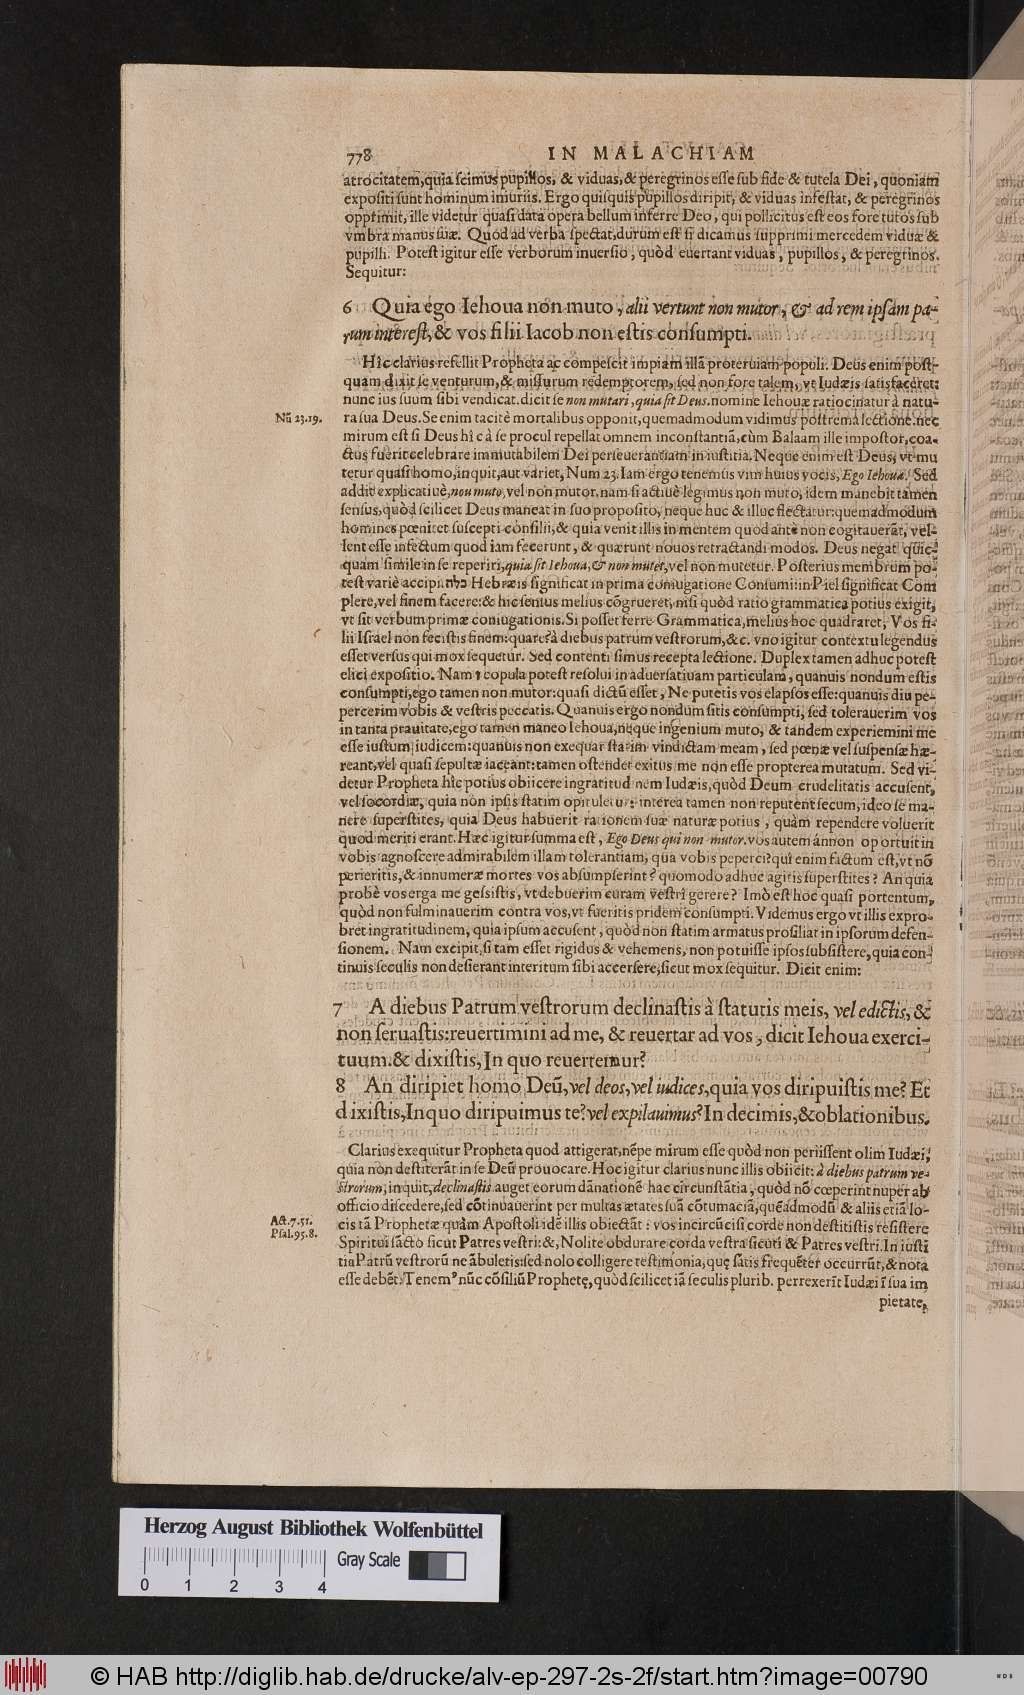 778 IN MALACHIAM
atrocitatem, quia scimus pupillos, & viduas, & peregrinos esse sub fide & tutela Dei, quoniam
expositi sunt hominum iniuriis. Ergo quisquis pupillos diripit, & viduas infestat, & peregrinos
opprimit, ille videtur quasi data opera bellum inferre Deo, qui pollicitus est eos fore tutos sub
vmbra manus suæ. Quod ad verba spectat, durum est si dicamus supprimi mercedem viduæ &
pupilli. Potest igitur esse verborum inuersio, quòd euertant viduas, pupillos, & peregrinos.
Sequitur:
6 Quia ego Iehoua non muto, alii vertunt non mutor, & ad rem ipsam pa-
rum interest, & vos filii Iacob non estis consumpti.
Hîc clarius refellit Propheta ac compescit impiam illā proteruiam populi. Deus enim post-
quam dixit se venturum, & missurum redemptorem, sed non fore talem, vt Iudæis satisfaceret:
nunc ius suum sibi vendicat. dicit se non mutari, quia sit Deus. nomine Iehouæ ratiocinatur à natu-
Nū 23.19. ra sua Deus. Se enim tacitè mortalibus opponit, quemadmodum vidimus postrema lectione. nec
mirum est si Deus hîc à se procul repellat omnem inconstantiā, cùm Balaam ille impostor, coa-
ctus fuerit celebrare immutabilem Dei perseuerantiam in iustitia. Neque enim est Deus, vt mu
tetur quasi homo, inquit, aut variet, Num 23. Iam ergo tenemus vim huius vocis, Ego Iehoua. Sed
addit explicatiuè, non muto, vel non mutor. nam si actiuè legimus non muto, idem manebit tamen
sensus, quòd scilicet Deus maneat in suo proposito, neque huc & illuc flectatur: quemadmodum
homines pœnitet suscepti consilii, & quia venit illis in mentem quod antè non cogitauerāt, vel-
lent esse infectum quod iam fecerunt, & quærunt nouos retractandi modos. Deus negat quic-
quam simile in se reperiri, quia sit Iehoua, & non mutet, vel non mutetur. Posterius membrum po-
test variè accipi. כלה Hebræis significat in prima coniugatione Consumi: in Piel significat Com
plere, vel finem facere: & hic sensus melius cōgrueret, nisi quòd ratio grammatica potius exigit,
vt sit verbum primæ coniugationis. Si posset ferre Grammatica, melius hoc quadraret, Vos fi-
lii Israel non fecistis finem: quare? à diebus patrum vestrorum, &c. vno igitur contextu legendus
esset versus qui mox sequetur. Sed contenti simus recepta lectione. Duplex tamen adhuc potest
elici expositio. Nam ו copula potest resolui in aduersatiuam particulam, quanuis nondum estis
consumpti, ego tamen non mutor: quasi dictū esset, Ne putetis vos elapsos esse: quanuis diu pe-
percerim vobis & vestris peccatis. Quanuis ergo nondum sitis consumpti, sed tolerauerim vos
in tanta prauitate, ego tamen maneo Iehoua, neque ingenium muto, & tandem experiemini me
esse iustum iudicem: quanuis non exequar statim vindictam meam, sed pœnæ vel suspensæ hæ-
reant, vel quasi sepultæ iaceant: tamen ostendet exitus me non esse propterea mutatum. Sed vi-
detur Propheta hîc potius obiicere ingratitudinem Iudæis, quòd Deum crudelitatis accusent,
vel socordiæ, quia non ipsis statim opituletur: interea tamen non reputent secum, ideo se ma-
nere superstites, quia Deus habuerit rationem suæ naturæ potius, quàm rependere voluerit
quod meriti erant. Hæc igitur summa est, Ego Deus qui non mutor. vos autem ánnon oportuit in
vobis agnoscere admirabilem illam tolerantiam, qua vobis peperci? qui enim factum est, vt nō
perieritis, & innumeræ mortes vos absumpserint? quomodo adhuc agitis superstites? An quia
probè vos erga me gessistis, vt debuerim curam vestri gerere? Imò est hoc quasi portentum,
quòd non fulminauerim contra vos, vt fueritis pridem consumpti. Videmus ergo vt illis expro-
bret ingratitudinem, quia ipsum accusent, quòd non statim armatus prosiliat in ipsorum defen-
sionem. Nam excipit, si tam esset rigidus & vehemens, non potuisse ipsos subsistere, quia con-
tinuis seculis non desierant interitum sibi accersere, sicut mox sequitur. Dicit enim:
7 A diebus Patrum vestrorum declinastis à statutis meis, vel edictis, &
non seruastis: reuertimini ad me, & reuertar ad vos, dicit Iehoua exerci-
tuum. & dixistis, In quo reuertemur?
8 An diripiet homo Deū, vel deos, vel iudices, quia vos diripuistis me? Et
dixistis, In quo diripuimus te? vel expilauimus? In decimis, & oblationibus.
Clarius exequitur Propheta quod attigerat, nēpe mirum esse quòd non periissent olim Iudæi,
quia non destiterāt in se Deū prouocare. Hoc igitur clarius nunc illis obiicit: à diebus patrum ve-
strorum, inquit, declinastis. auget eorum dānationē hac circunstātia, quòd nō cœperint nuper ab
officio discedere, sed cōtinuauerint per multas ætates suā cōtumaciā, quēadmodū & aliis etiā lo-
Act. 7. 51. cis tā Prophetæ quàm Apostoli idē illis obiectāt: vos incircūcisi corde non destitistis resistere
Psal. 95. 8. Spiritui sācto sicut Patres vestri: &, Nolite obdurare corda vestra sicuti & Patres vestri. In iusti
tia Patrū vestrorū ne ābuletis: sed nolo colligere testimonia, quę satis frequēter occurrūt, & nota
esse debēt. Tenemꝰ nūc cōsiliū Prophetę, quòd scilicet iā seculis plurib. perrexerīt Iudæi ī sua im
pietate,
Herzog August Bibliothek Wolfenbüttel
Gray Scale
0 1 2 3 4
© HAB http://diglib.hab.de/drucke/alv-ep-297-2s-2f/start.htm?image=00790